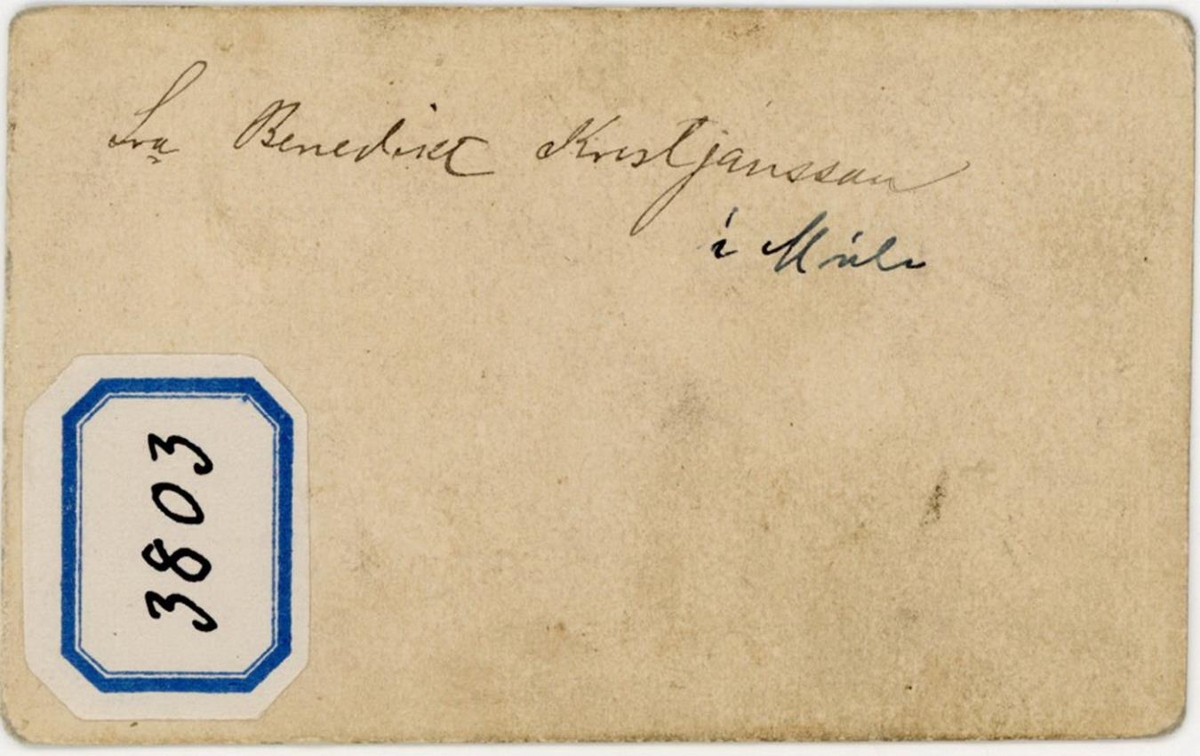 Sra Benedikt Kristjansson
í Múla
3803